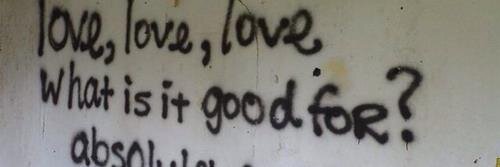 love, love, love
What is it good for?